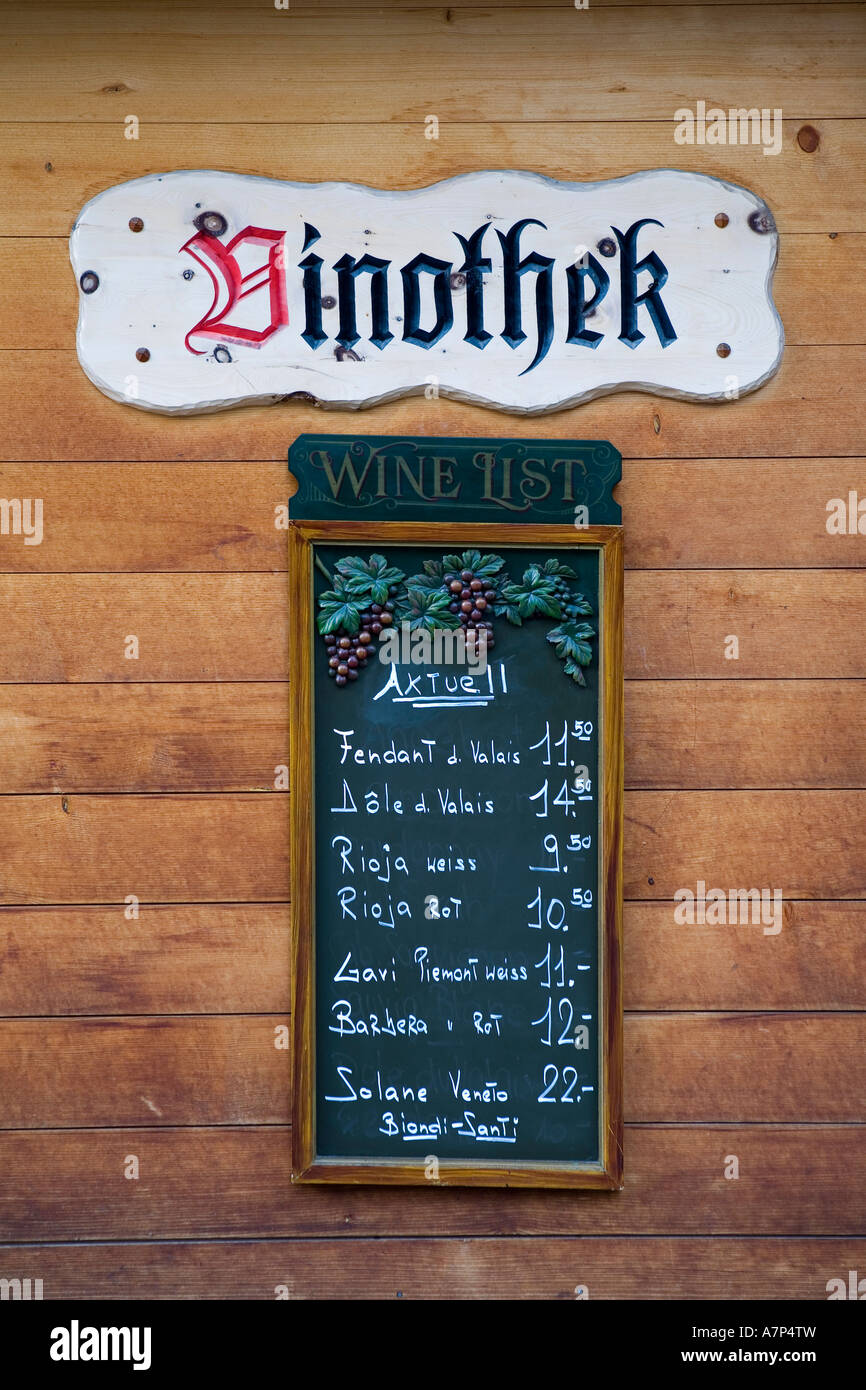 Vinothek
WINE LIST
AKTUELL
Fendant d. Valais 11.50
Dôle d. Valais 14.50
Rioja weiss 9.50
Rioja ROT 10.50
Gavi Piemont weiss 11.-
BARbERA " ROT 12.-
Solane Veneto 22.-
Biondi-Santi
alamy
Image ID: A7P4TW
www.alamy.com